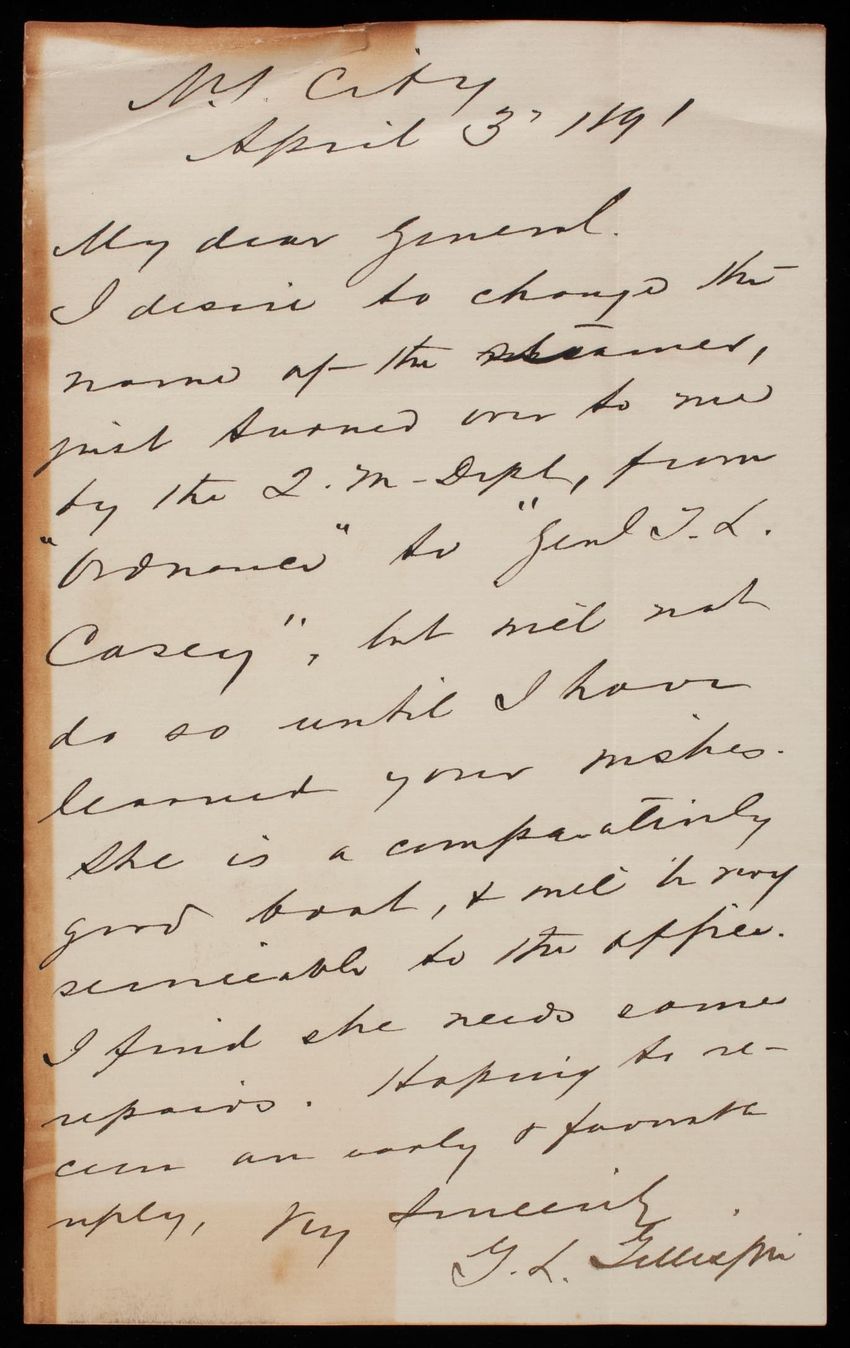 N.Y. City
April 3, 1891
My dear General.
I desire to change the
name of the steamer,
just turned over to me
by the Q. M. Dept, from
"Ordnance" to "Genl T. L.
Casey", but will not
do so until I have
learned your wishes.
She is a comparatively
good boat, & will be very
serviceable to the office.
I find she needs some
repairs. Hoping to re-
ceive an early & favorable
reply, Very Sincerely
G. L. Gillespie